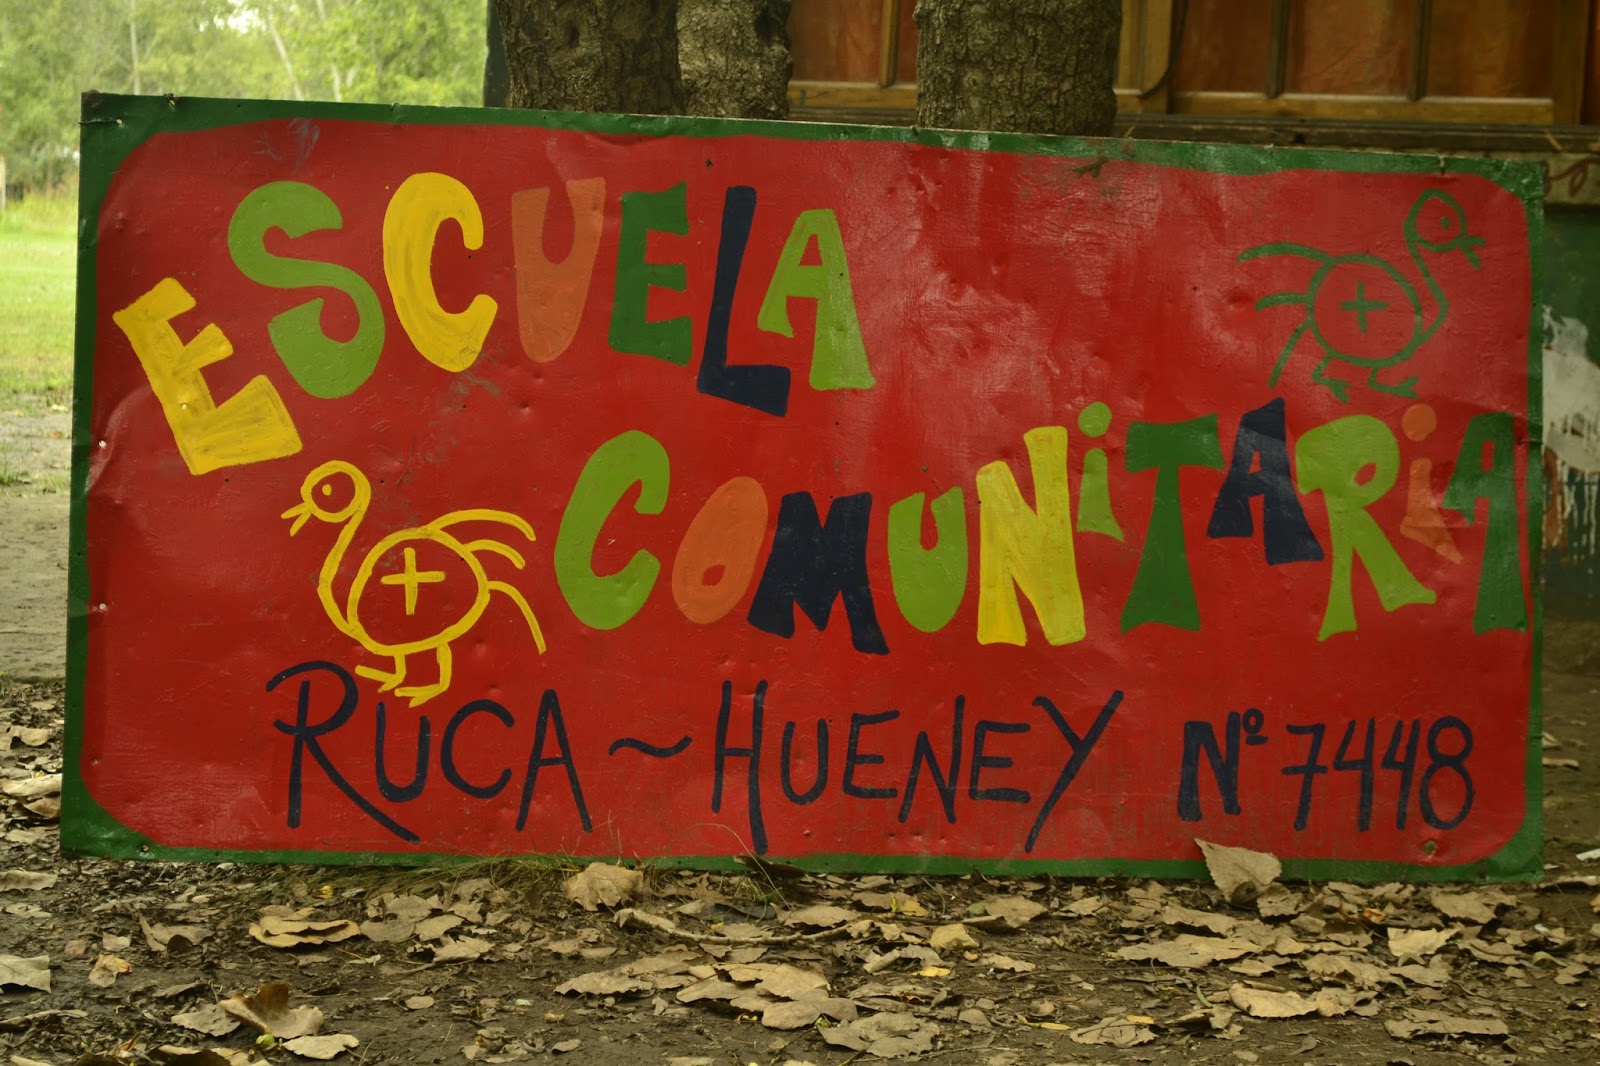 ESCUELA
COMUNiTARiA
RUCA~HUENEY Nº 7448